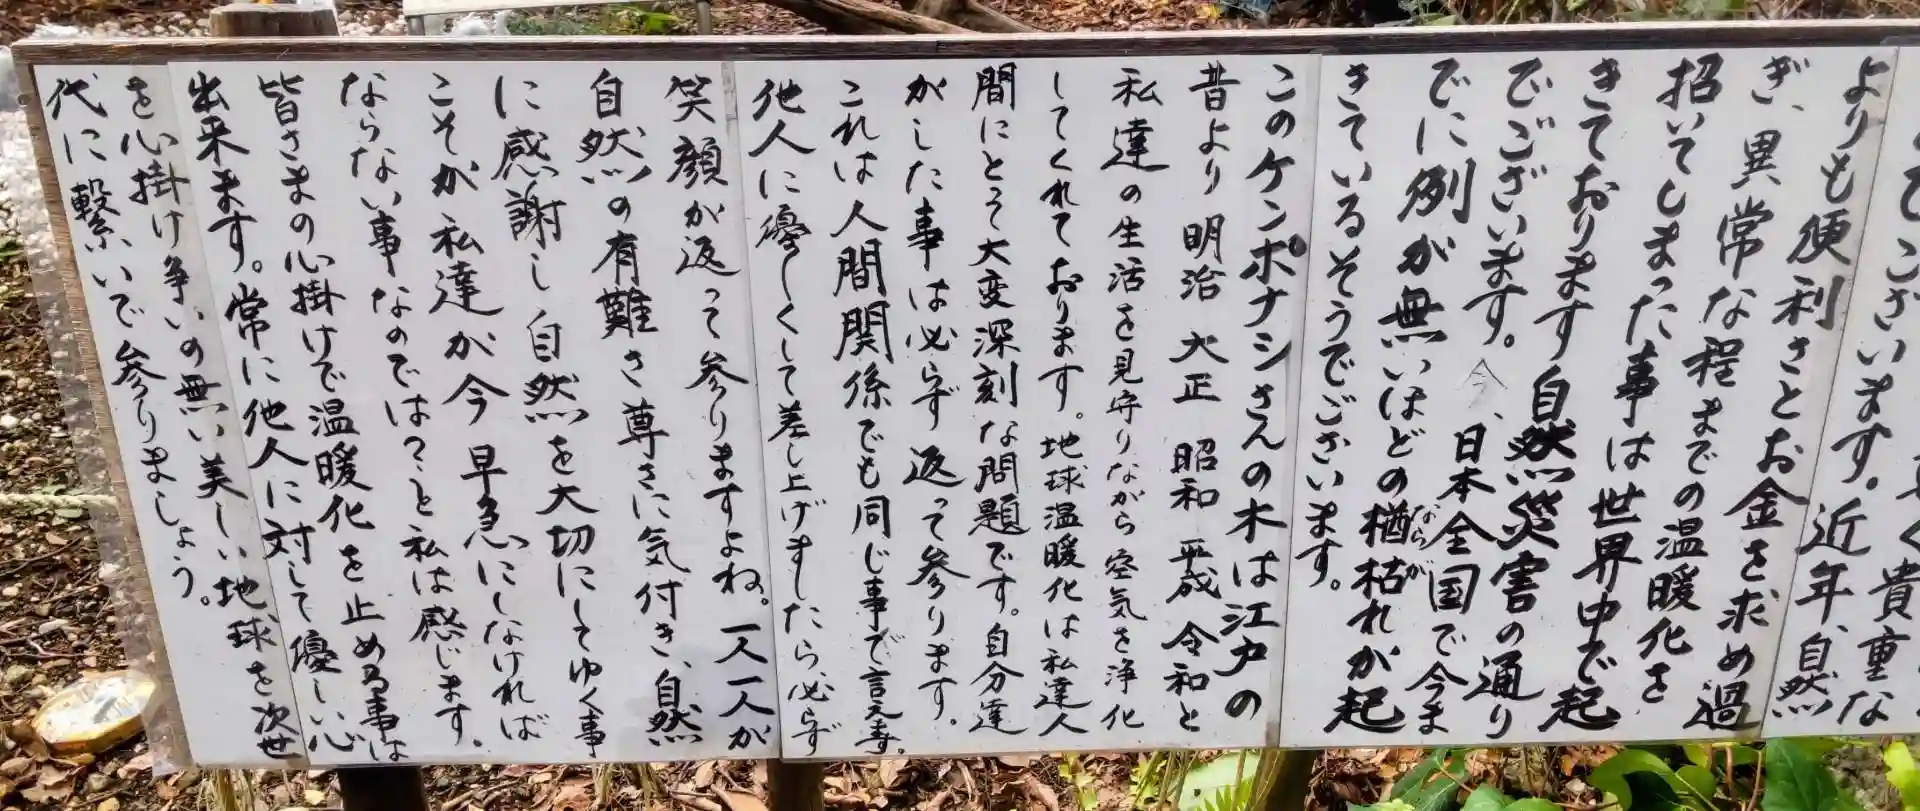 ございます。貴重な
よりも便利さとお金を求め過
ぎ、異常な程までの温暖化を
招いてしまった事は世界中で起
きております自然災害の通り
でございます。今、日本全国で今ま
でに例が無いほどの楢枯れが起
ならが
きているそうでございます。
このケンポナシさんの木は江戸の
昔より明治 大正 昭和 平成 令和と
私達の生活を見守りながら空気を浄化
してくれております。地球温暖化は私達人
間にとって大変深刻な問題です。自分達
がした事は必らず返って参ります。
これは人間関係でも同じ事で言えます。
他人に優しくして差し上げましたら、必らず
笑顔が返って参りますよね。一人一人が
自然の有難さ尊さに気付き、自然
に感謝し自然を大切にしてゆく事
こそが私達が今早急にしなければ
ならない事なのでは?と私は感じます。
皆さまの心掛けで温暖化を止める事は
出来ます。常に他人に対して優しい心
を心掛け争いの無い美しい地球を次世
代に繋いで参りましょう。